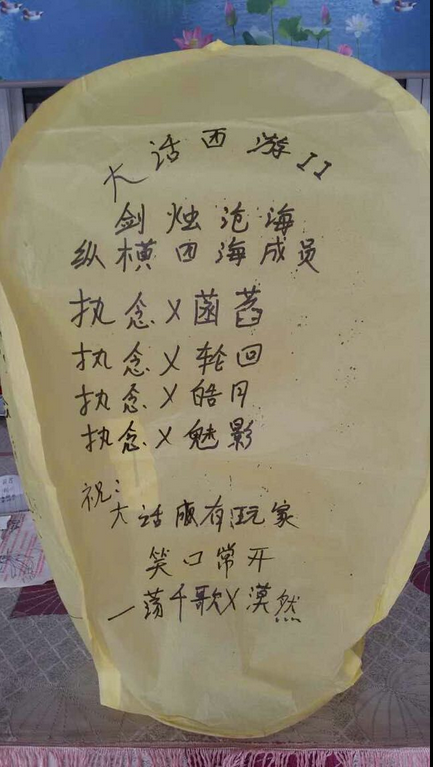 大话西游II
剑烛沧海
纵横四海成员
执念X菡萏
执念X轮回
执念X皓月
执念X魅影
祝:
大话所有玩家
笑口常开
一荡千歌X漠然